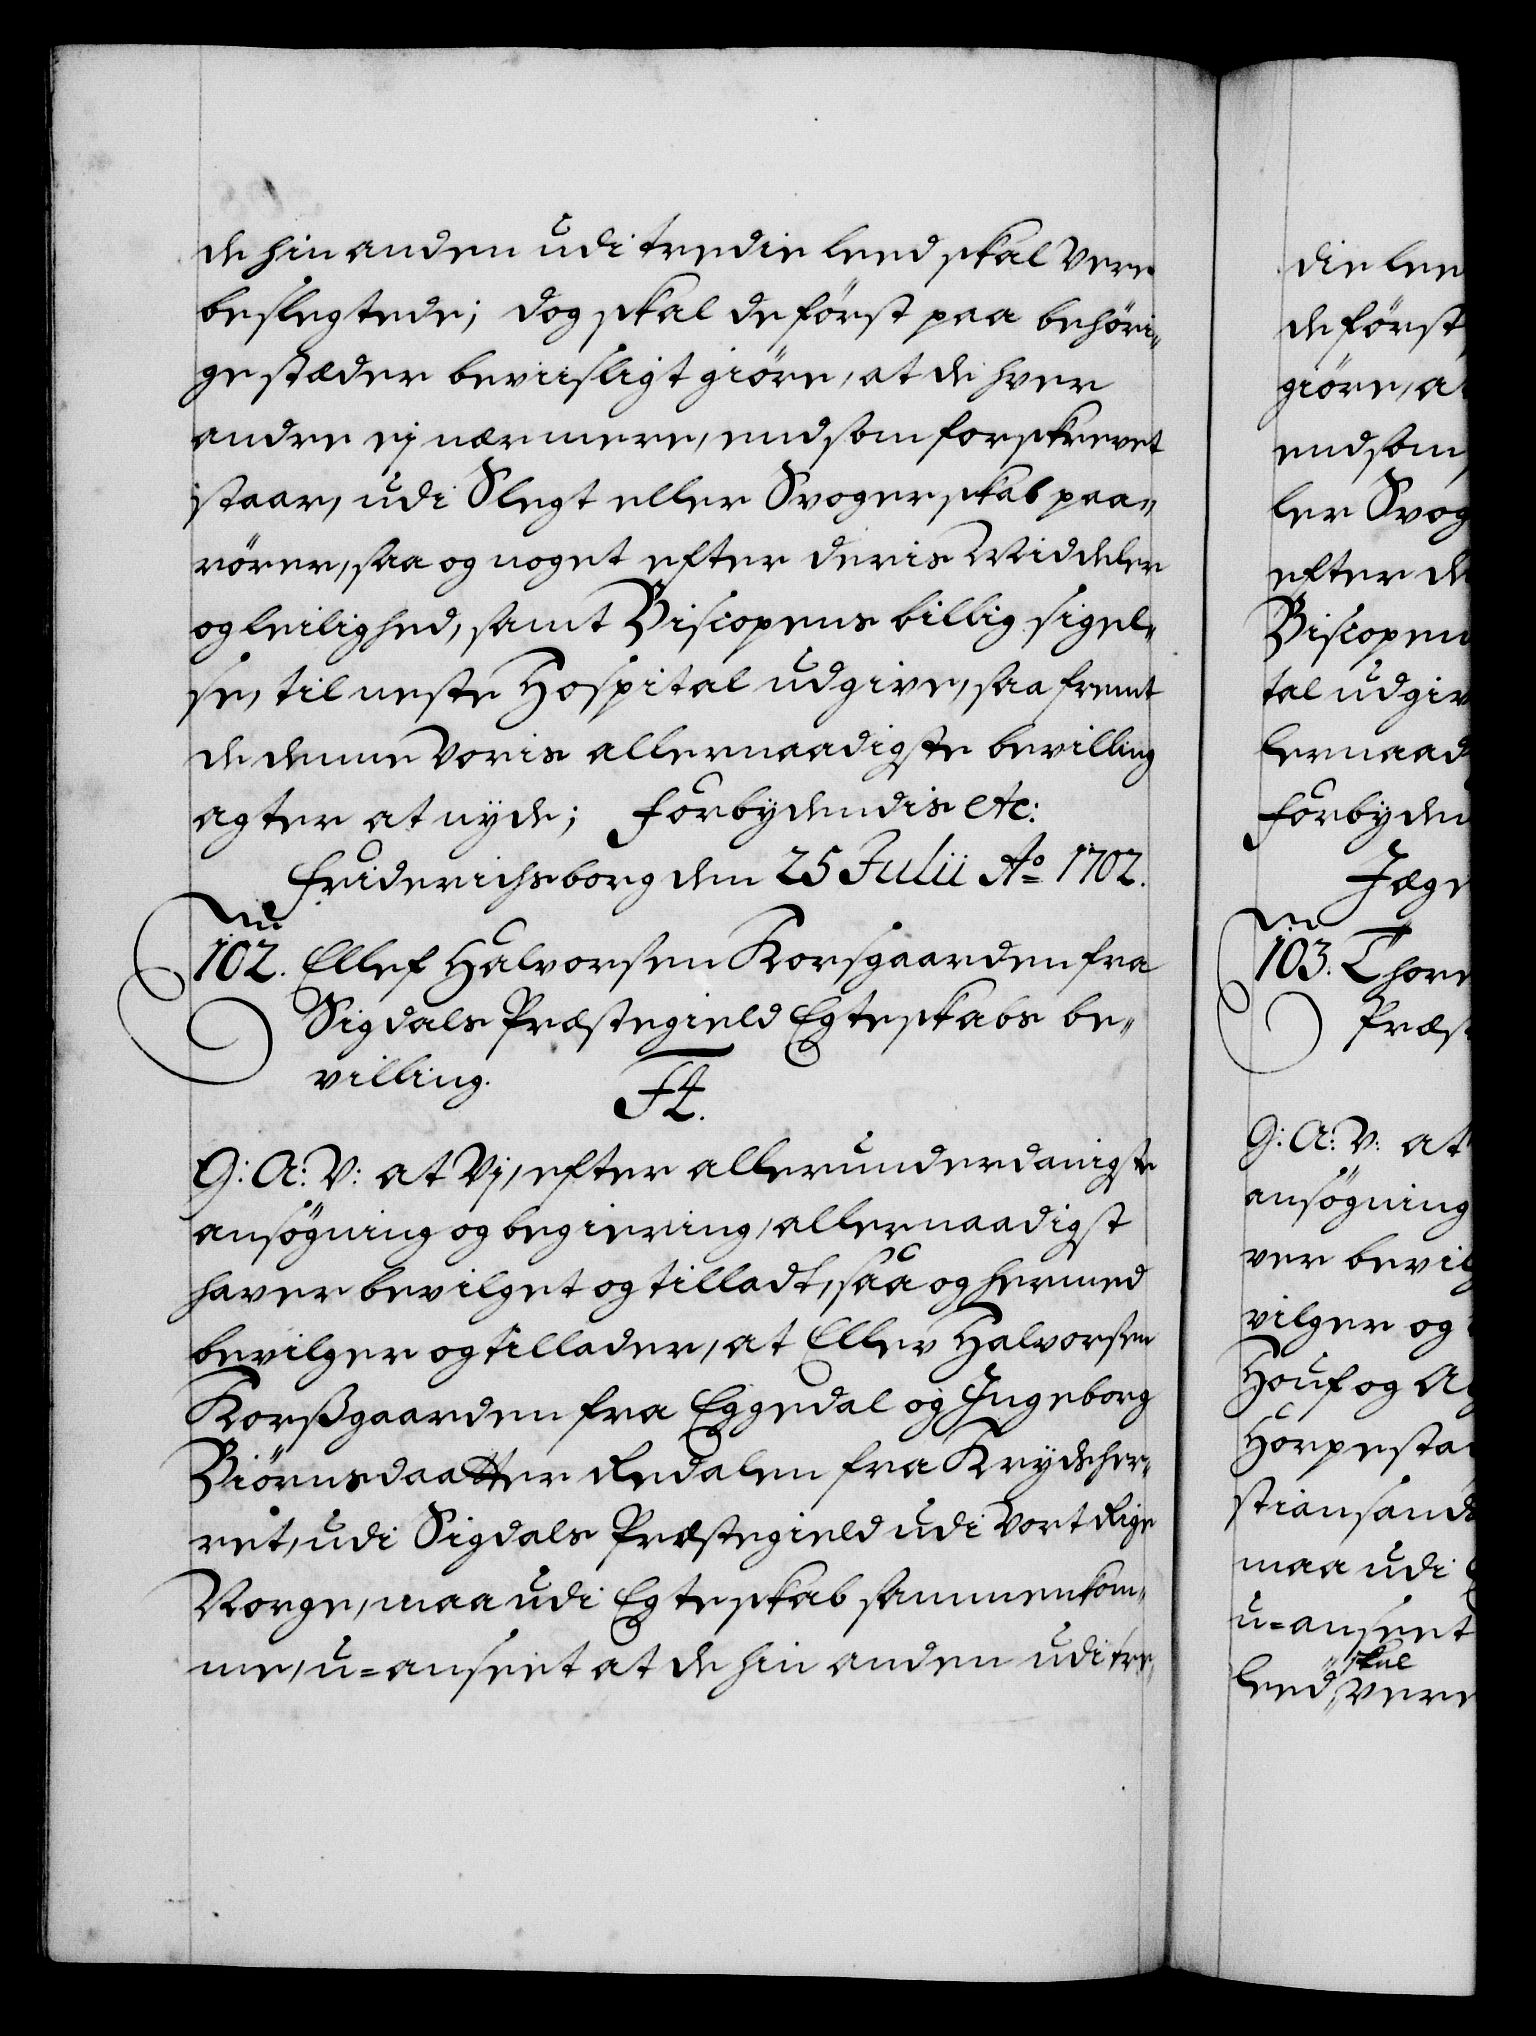 de hin anden udi tredie leed skal vere
beslegtede; dog skal de först paa behöri„
ge stæder beviisligt giöre, at de hver
andre ej nærmere, end som forskrevet
staar, udi Slegt eller Svogerskab paa„
rörer, saa og noget efter deris Middeler
og leilighed, samt Biscopens billig sigel„
se, til neste Hospital udgive, saa fremt
de denne Voris allernaadigste bevilling
agter at nyde; Forbydendis etc:
Friderichsborg den 25 Julii Ao 1702.
102. Ellef Halvorsen Korsgaarden fra
Sigdals Præstegield Egteskabs be„
villing.
F4.
G: A: V: at Vj, efter allerunderdanigste
ansögning og begiering, allernaadigst
haver bevilget og tilladt, saa og hermed
bevilger og tillader, at Ellev Halvorsen
Korßgaarden fra Eggedal og Ingeborg
Biörnsdaatter Redalen fra Krydsher„
ret, udi Sigdals Præstegield udi Vort Rige
Norge, maa udi Egteskab sammenkom„
me, u=anseet at de hin anden udi tre„
die lee
de först
giöre, a
end som
ler Svog
efter de
Biscopen
tal udgiv
lernaad
Forbyden
Jæge
103. Thore
Præst
G: A: V: at
ansögning
ver bevilg
vilger og
Houf og A
Hörpesta
stiansands
maa udi
u=anseet
skal
leed, vere